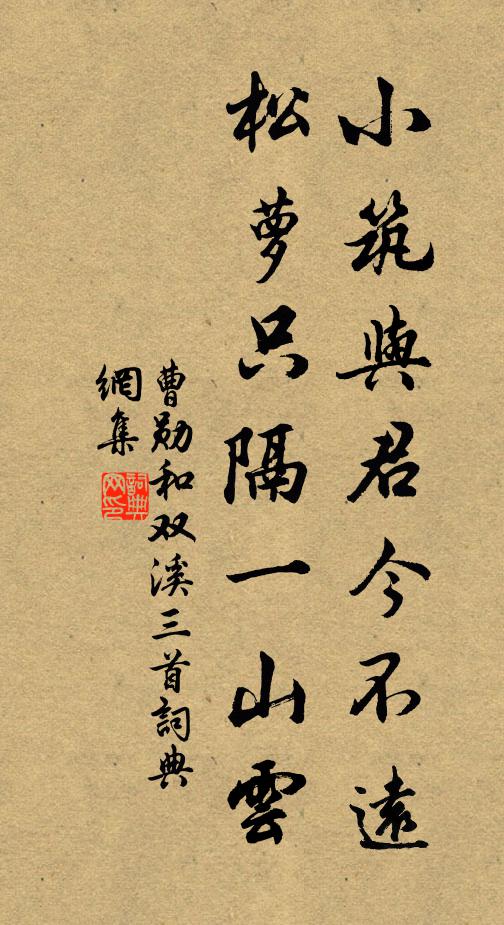 小筑與君今不遠
松萝只隔一山雲
曹勋和双溪三首詞典
網集
詞典
网印